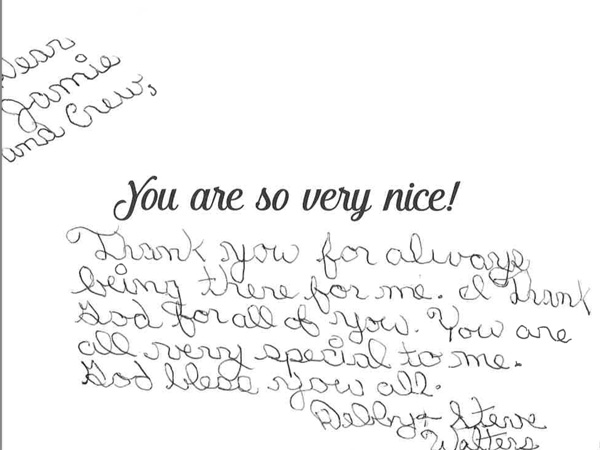 Dear
Jamie
and Crew,
You are so very nice!
Thank you for always
being there for me. I Thank
God for all of you. You are
all very special to me.
God bless you all.
Debby + Steve
Walters